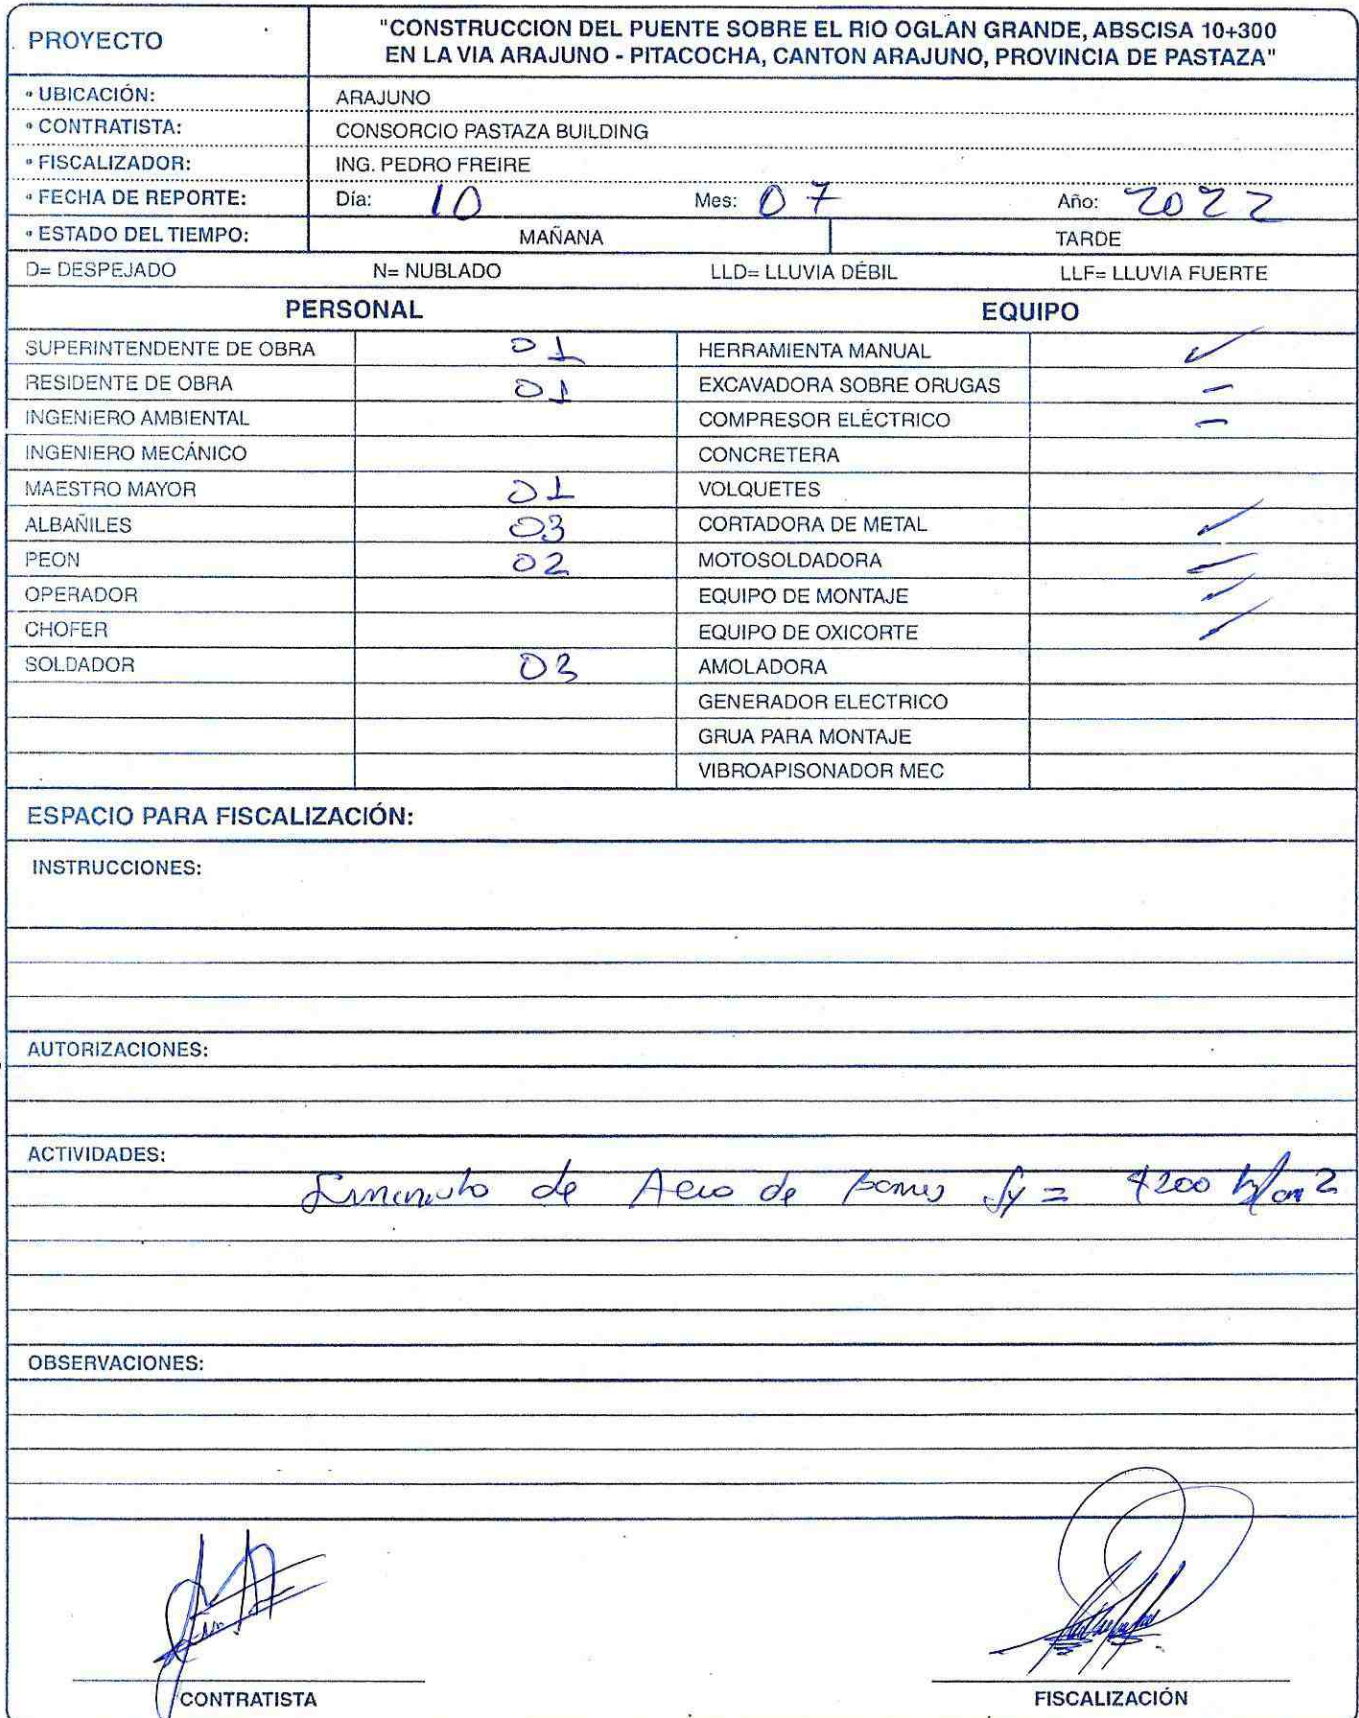 PROYECTO
"CONSTRUCCION DEL PUENTE SOBRE EL RIO OGLÁN GRANDE, ABSCISA 10+300
EN LA VIA ARAJUNO - PITACOCHA, CANTON ARAJUNO, PROVINCIA DE PASTAZA"
• UBICACIÓN: ARAJUNO
• CONTRATISTA: CONSORCIO PASTAZA BUILDING
• FISCALIZADOR: ING. PEDRO FREIRE
• FECHA DE REPORTE: Día: 10 Mes: 07 Año: 2022
• ESTADO DEL TIEMPO: MAÑANA TARDE
D= DESPEJADO N= NUBLADO LLD= LLUVIA DÉBIL LLF= LLUVIA FUERTE
PERSONAL EQUIPO
SUPERINTENDENTE DE OBRA 01 HERRAMIENTA MANUAL ✓
RESIDENTE DE OBRA 01 EXCAVADORA SOBRE ORUGAS -
INGENIERO AMBIENTAL COMPRESOR ELÉCTRICO -
INGENIERO MECÁNICO CONCRETERA
MAESTRO MAYOR 01 VOLQUETES
ALBAÑILES 03 CORTADORA DE METAL ✓
PEON 02 MOTOSOLDADORA ✓
OPERADOR EQUIPO DE MONTAJE ✓
CHOFER EQUIPO DE OXICORTE ✓
SOLDADOR 03 AMOLADORA
GENERADOR ELECTRICO
GRUA PARA MONTAJE
VIBROAPISONADOR MEC
ESPACIO PARA FISCALIZACIÓN:
INSTRUCCIONES:
AUTORIZACIONES:
ACTIVIDADES:
de de fy = 4200 kg/cm2
OBSERVACIONES:
CONTRATISTA FISCALIZACIÓN